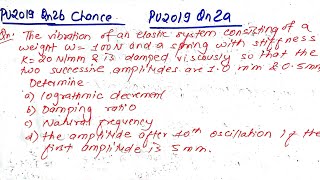 PU2019 Qn2b Chance PU2019 Qn2a
Qn: The vibration of an elastic system consisting of a
weight W = 100N and a spring with stiffness
K = 20 N/mm & is damped viscously so that the
two successive amplitudes are 1.0 mm & 0.5mm
Determine
a) lograthmic decrement
b) Damping ratio
c) Natural frequency
d) the amplitude after 10th oscillation if the
first amplitude is 5 mm.